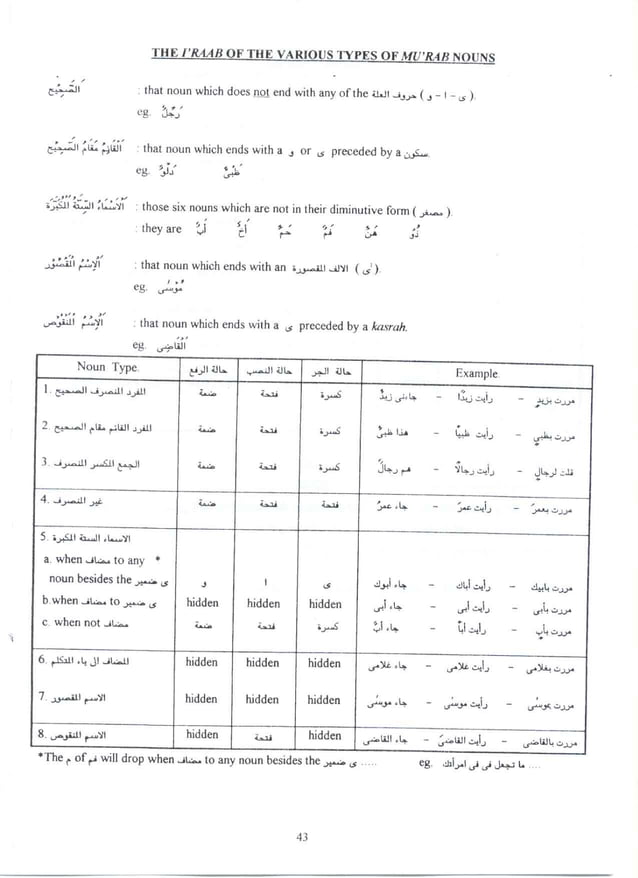 THE I'RAAB OF THE VARIOUS TYPES OF MU'RAB NOUNS
اَلصَّحِيْحُ : that noun which does not end with any of the حروف العلة ( و - ا - ى ).
eg. رَجُلٌ
اَلْقَائِمُ مَقَامَ الصَّحِيْحِ : that noun which ends with a و or ى preceded by a سكون.
eg. دَلْوٌ ظَبْىٌ
اَلْأَسْمَاءُ السِّتَّةُ الْمُكَبَّرَةُ : those six nouns which are not in their diminutive form ( مصغر ).
: they are أَبٌ أَخٌ حَمٌ فَمٌ هَنٌ ذُوْ
اَلْإِسْمُ الْمَقْصُوْرُ : that noun which ends with an الالف المقصورة ( ىٰ ).
eg. مُوْسٰى
اَلْإِسْمُ الْمَنْقُوْصُ : that noun which ends with a ى preceded by a kasrah.
eg. اَلْقَاضِى
Noun Type. حالة الرفع حالة النصب حالة الجر Example.
1. المفرد المنصرف الصحيح ضمة فتحة كسرة جاءنى زيدٌ - رأيت زيدًا - مررت بزيدٍ
2. المفرد القائم مقام الصحيح ضمة فتحة كسرة هذا ظبىٌ - رأيت ظبيًا - مررت بظبىٍ
3. الجمع المكسر المنصرف ضمة فتحة كسرة هم رجالٌ - رأيت رجالًا - قلت لرجالٍ
4. غير المنصرف ضمة فتحة فتحة جاء عمرُ - رأيت عمرَ - مررت بعمرَ
5. الاسماء الستة المكبرة
a. when مضاف to any *
noun besides the ى ضمير و ا ى جاء أبوك - رأيت أباك - مررت بابيك
b.when مضاف to ى ضمير hidden hidden hidden جاء أبى - رأيت أبى - مررت بأبى
c. when not مضاف ضمة فتحة كسرة جاء أبٌ - رأيت أبًا - مررت بأبٍ
6. المضاف الى ياء المتكلم hidden hidden hidden جاء غلامى - رأيت غلامى - مررت بغلامى
7. الاسم المقصور hidden hidden hidden جاء موسىٰ - رأيت موسىٰ - مررت بموسىٰ
8. الاسم المنقوص hidden فتحة hidden جاء القاضى - رأيت القاضىَ - مررت بالقاضى
*The م of فم will drop when مضاف to any noun besides the ى ضمير ..... eg. ما تجعل فى فى امرأتك ....
43